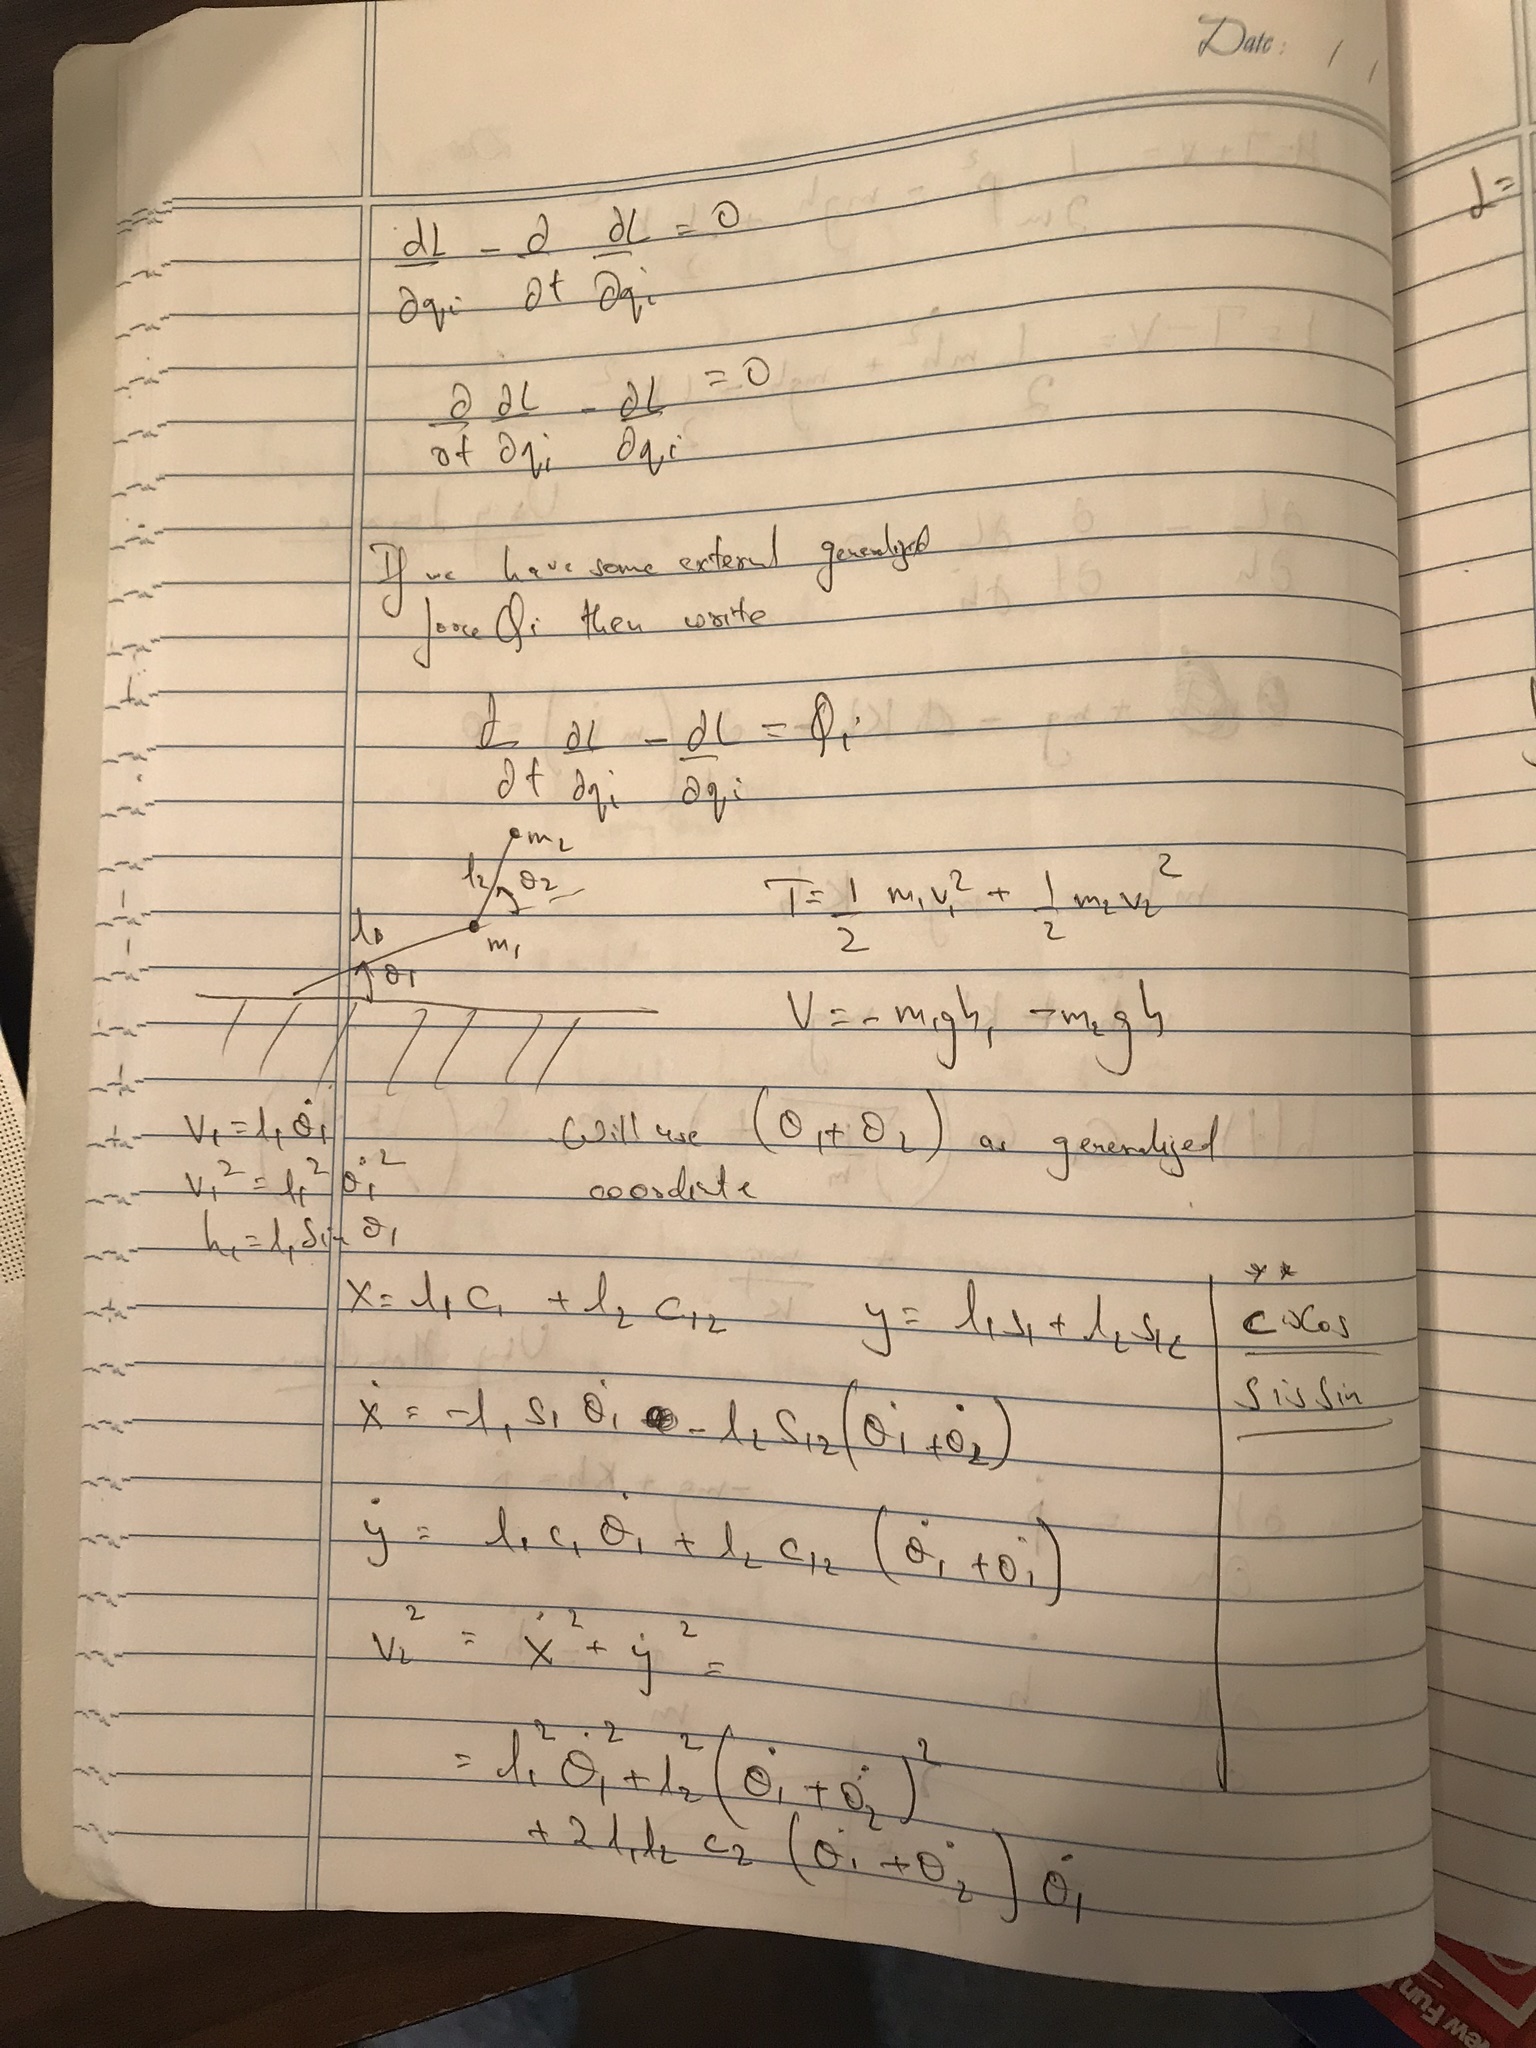 Date: / /
∂L/∂qᵢ - ∂/∂t ∂L/∂qᵢ = 0
∂/∂t ∂L/∂qᵢ - ∂L/∂qᵢ = 0
If we have some external generalized
force Qᵢ then write
∂/∂t ∂L/∂qᵢ - ∂L/∂qᵢ = Qᵢ
m₂
l₂ θ₂
l₁ m₁
θ₁
T = 1/2 m₁v₁² + 1/2 m₂v₂²
V = - m₁gh₁ - m₂gh
v₁ = l₁θ̇₁
v₁² = l₁²θ̇₁²
h₁ = l₁ Sin θ₁
Will use (θ₁ + θ₂) as generalized
coordinate
x = l₁c₁ + l₂c₁₂ y = l₁s₁ + l₂s₁₂
**
C is Cos
S is Sin
ẋ = -l₁s₁θ̇₁ - l₂s₁₂(θ̇₁ + θ̇₂)
ẏ = l₁c₁θ̇₁ + l₂c₁₂(θ̇₁ + θ̇₁)
v₂² = ẋ² + ẏ² =
= l₁²θ̇₁² + l₂²(θ̇₁ + θ̇₂)²
+ 2l₁l₂c₂(θ̇₁ + θ̇₂)θ̇₁
L=
ew Fun